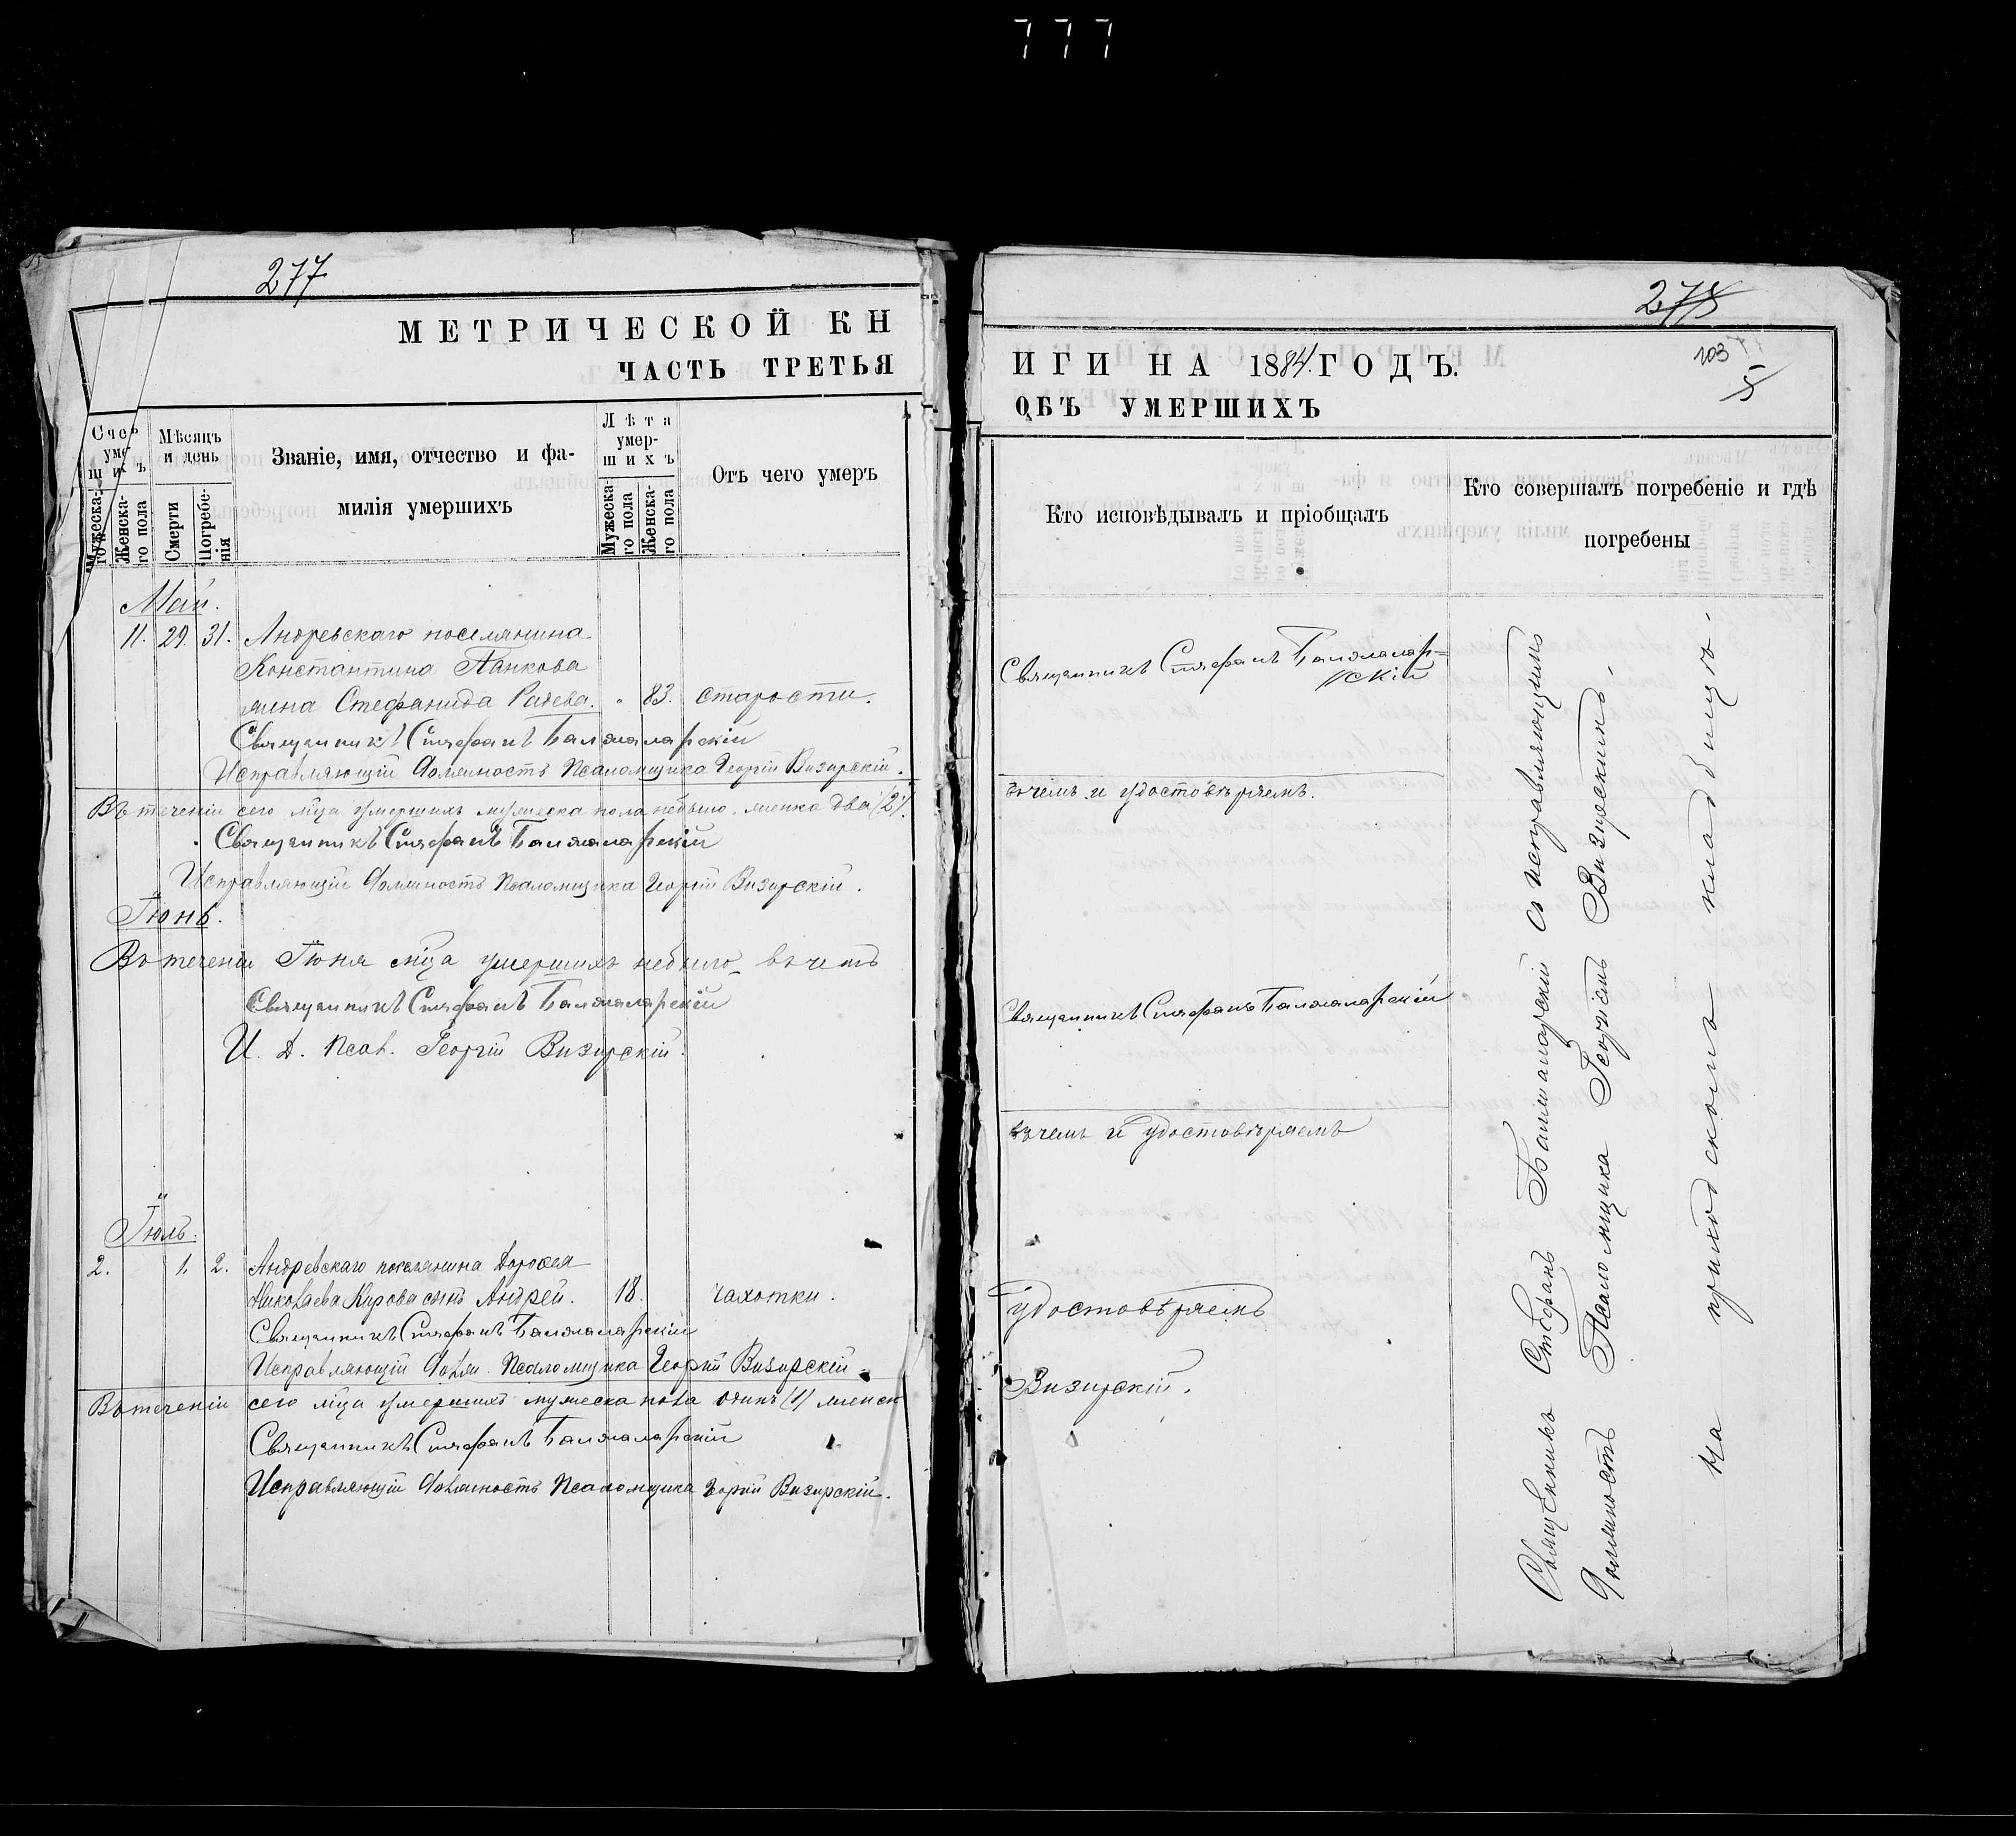 777
277
МЕТРИЧЕСКОЙ КН
ЧАСТЬ ТРЕТЬЯ
Счетъ умершихъ
Мужеска-го пола
Женска-го пола
Мѣсяцъ и день
Смерти
Погребе-нія
Званіе, имя, отчество и фа-
милія умершихъ
Лѣта умер-шихъ
Мужеска-го пола
Женска-го пола
Отъ чего умеръ
Май.
11. 29. 31. Андревскаго поселянина
Константина Панкова
жена Стефанида Радева. " 83. старости.
Священникъ Стефанъ Балжаларскій
Исправляющій должность Псаломщика Георгій Визирскій.
Въ теченіи сего мца умершихъ мужеска пола небыло. женска два (2).
Священникъ Стефанъ Балжаларскій
Исправляющій должность Псаломщика Георгій Визирскій.
Іюнь.
Въ теченіи Іюня мца умершихъ небыло въ чемъ
Священникъ Стефанъ Балжаларскій
И. д. Псал. Георгій Визирскій.
Іюль.
2. 1. 2. Андревскаго поселянина Дорофея
Николаева Кирова сынъ Андрей. 18. чахотки.
Священникъ Стефанъ Балжаларскій
Исправляющій долж. Псаломщика Георгій Визирскій
Въ теченіи сего мца умершихъ мужеска пола одинъ (1) женск
Священникъ Стефанъ Балжаларскій
Исправляющій должность Псаломщика Георгій Визирскій.
278
103
ИГИ НА 1884 ГОДЪ.
ОБЪ УМЕРШИХЪ
Кто исповѣдывалъ и пріобщалъ
Кто совершалъ погребеніе и гдѣ
погребены
Священникъ Стефанъ Балжалар=
скій
въ чемъ и удостовѣряемъ.
Священникъ Стефанъ Балжаларскій
въ чемъ и удостовѣряемъ
удостовѣряемъ
Визирскій.
Священникъ Стефанъ Балжаларскій съ исправляющимъ
должность Псаломщика Георгіемъ Визирскимъ,
на приходскомъ кладбищѣ.